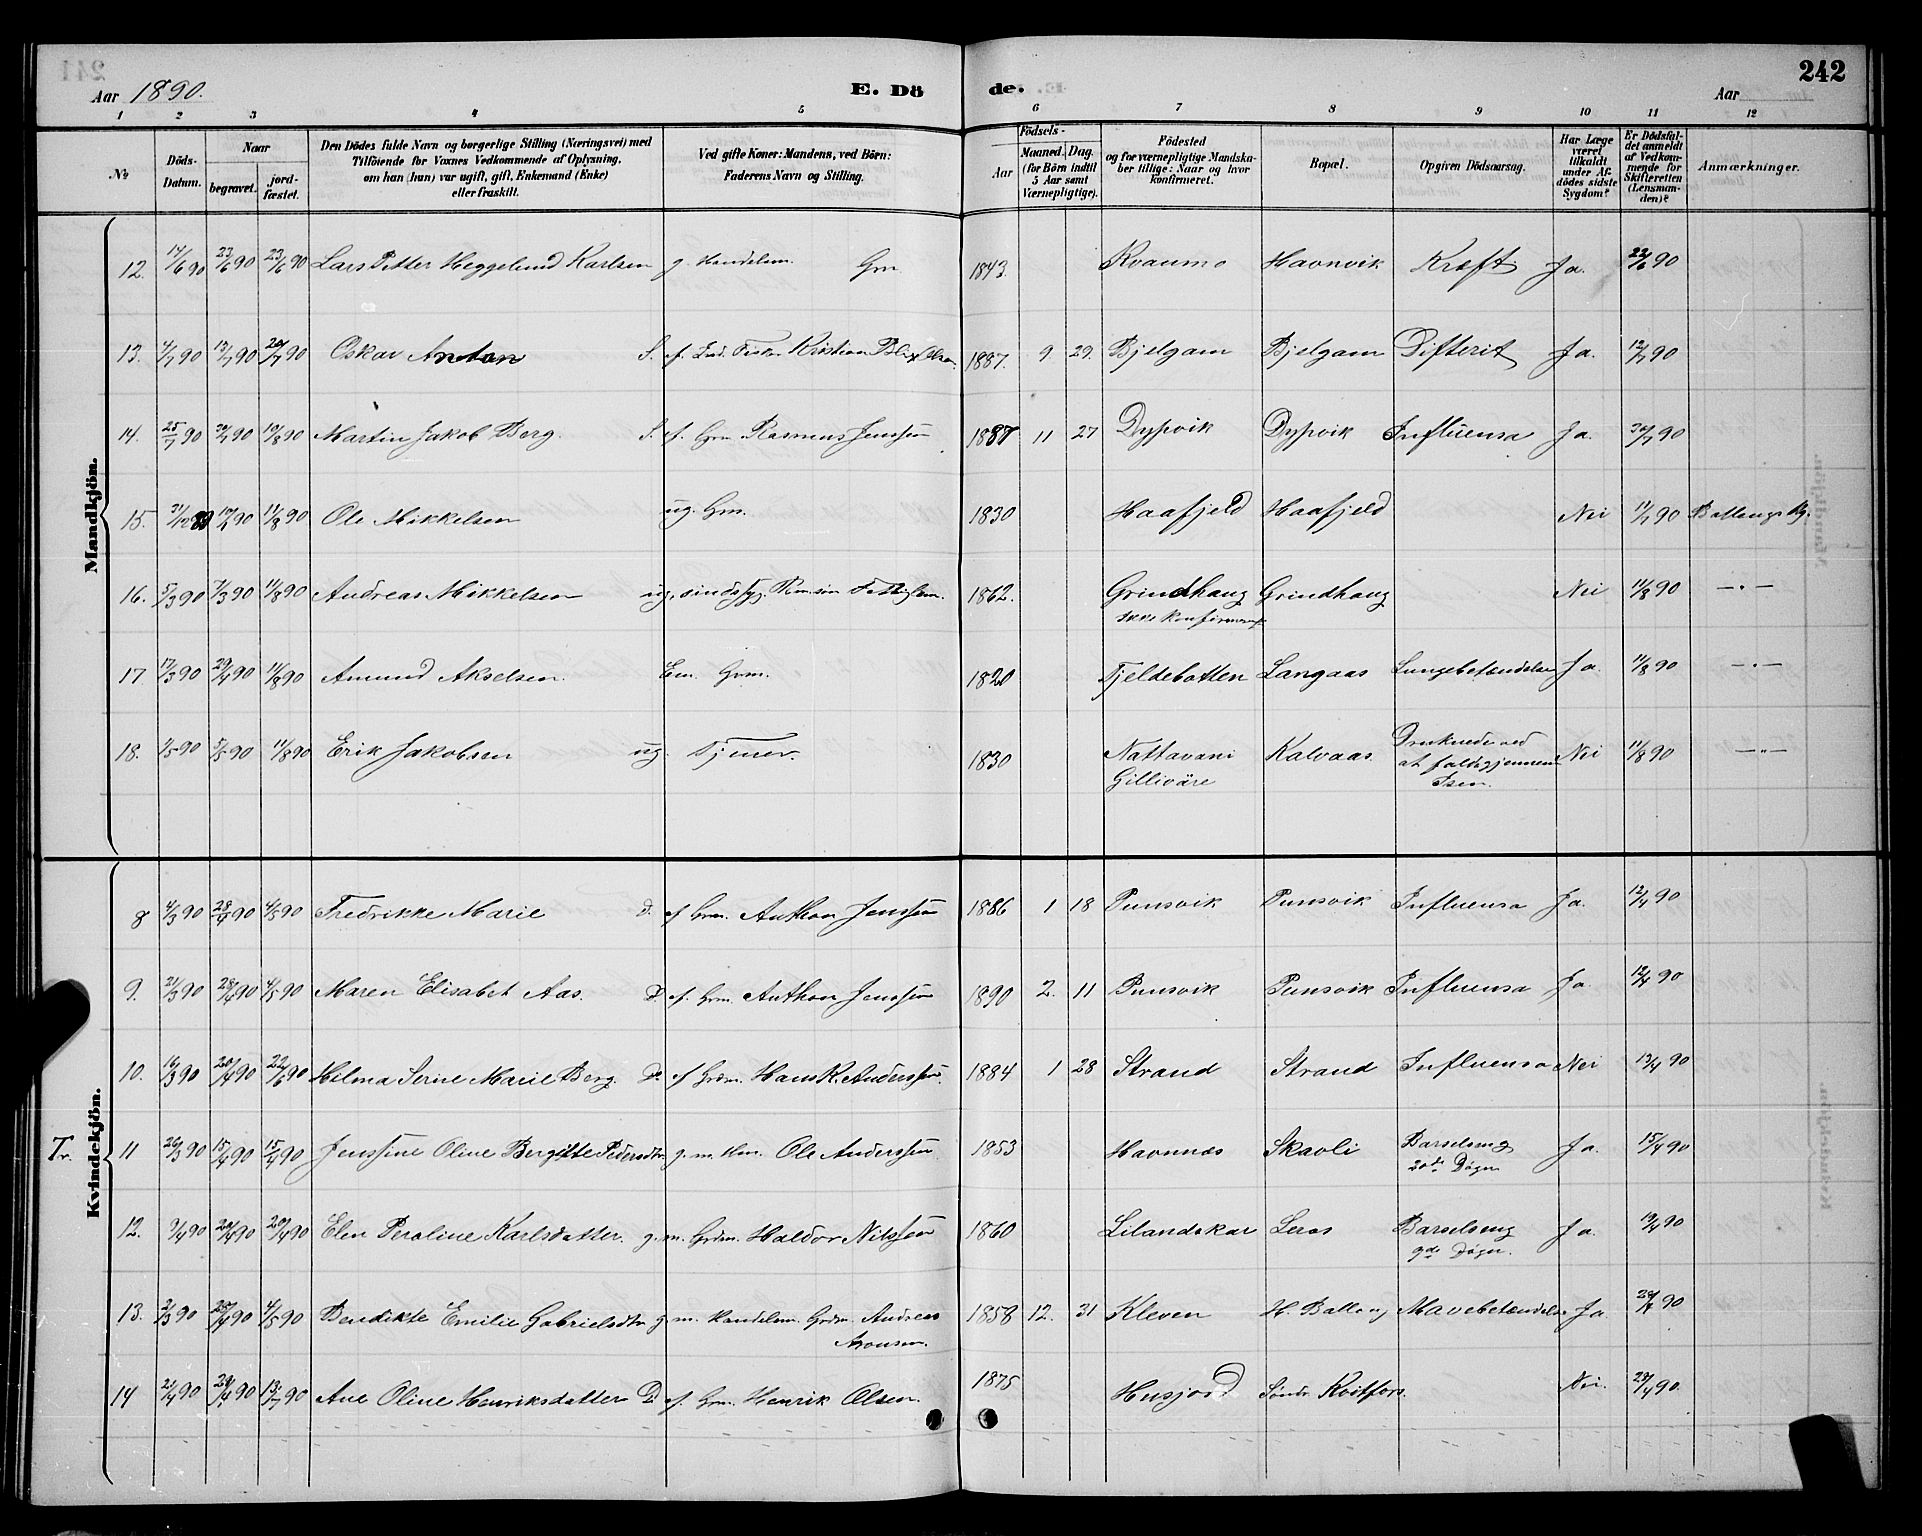 241
242
Aar 1890.
E. Dö
de.
Aar
1 2 3 4 5 6 7 8 9 10 11 12
№
Döds-Datum.
Naar
begravet.
jord-fæstet.
Den Dödes fulde Navn og borgerlige Stilling (Næringsvei) med
Tilföiende for Voxnes Vedkommende af Oplysning,
om han (hun) var ugift, gift, Enkemand (Enke)
eller fraskilt.
Ved gifte Koner: Mandens, ved Börn:
Faderens Navn og Stilling.
Födsels-
Aar
Maaned. Dag.
(for Börn indtil
5 Aar samt
Værnepligtige).
Födested
og for værnepligtige Mandska-
ber tillige: Naar og hvor
konfirmeret.
Bopæl.
Opgiven Dödsaarsag.
Har Læge
været
tilkaldt
under Af-
dödes sidste
Sygdom?
Er Dödsfal-
det anmeldt
af Vedkom-
mende for
Skifteretten
(Lensman-
den)?
Anmærkninger.
Mandkjön.
12. 14/6 90 23/6 90 23/6 90 Lars Petter Heggelund Karlsen g. Handelsm. Grm. 1843. Kvanmo Havnvik Kræft Ja. 22/6 90
13. 4/7 90 13/7 90 20/7 90 Oskar Anton S. af Ind. Fisker Kristian Blix Olsen. 1887. 9. 29. Bjelgam Bjelgam Difterit Ja. 12/7 90
14. 25/7 90 30/7 90 10/8 90 Martin Jakob Berg. S. af Grm. Rasmus Jenssen 1887 11 27 Dypvik Dypvik Influensa Ja. 30/7 90
15. 31/10 89 90 11/8 90 Ole Mikkelsen ug. Grm. 1830 Haafjeld Haafjeld Nei 11/7 90 Ballangs
16. 5/3 90 7/3 90 11/8 90 Andreas Mikkelsen ug. sindssyg. 1862. Grindhaug Grindhaug Nei 11/8 90 —„—
ikke konfirmeret
17. 17/3 90 29/4 90 11/8 90 Amund Akselsen. Em. Grm. 1820 Fjeldebotten Langaas Lungebetændelse Ja. 11/8 90 —„—
18. 1/5 90 5/5 90 11/8 90 Erik Jakobsen ug. Tjener. 1830 Nattavani Kalvaas. Druknede ved Nei 11/8 90 —„—
Gilliväre at falde gjennem
Isen.
Kvindekjön.
8 4/3 90 28/4 90 4/5 90 Fredrikke Marie D. af Grm. Anthon Jenssen 1886 1 18 Punsvik Punsvik Influensa Ja. 12/4 90
9. 21/3 90 28/4 90 4/5 90 Maren Elisabet Aas. D. af Grm. Anthon Jenssen 1890 2. 11 Punsvik Punsvik Influensa Ja. 12/4 90
10. 16/3 90 20/4 90 22/6 90 Hilma Serine Marie Berg. D. af Grdm. Hans K. Anderssen. 1884 1 28 Strand Strand Influensa Nei 13/4 90
Tr. 11 26/3 90 15/4 90 15/4 90 Jenssine Oline Bergitte Pedersdtr g. m. Hm. Ole Anderssen. 1853 Havnnæs Skavli Barselseng Ja. 15/4 90
20de Døgn
12. 9/4 90 20/4 90 20/4 90 Elen Peroline Karlsdatter. g. m. Grdm. Haldor Nilssen 1860 Lilandskar Leros Barselseng Ja. 19/4 90
9de Døgn.
13. 2/3 90 25/4 90 4/5 90 Bendikte Emilie Gabrielsdtr g. m. Handelsm. Grdm. Andreas 1858 12. 31 Kleven H. Ballang Mavebetændelse Ja. 28/4 90
Aronsen.
14 21/4 90 29/4 90 13/7 90 Ane Oline Henriksdatter D. af Grm. Henrik Olsen. 1875 Husjord Söndr. Kvitfors. Nei. 29/4 90